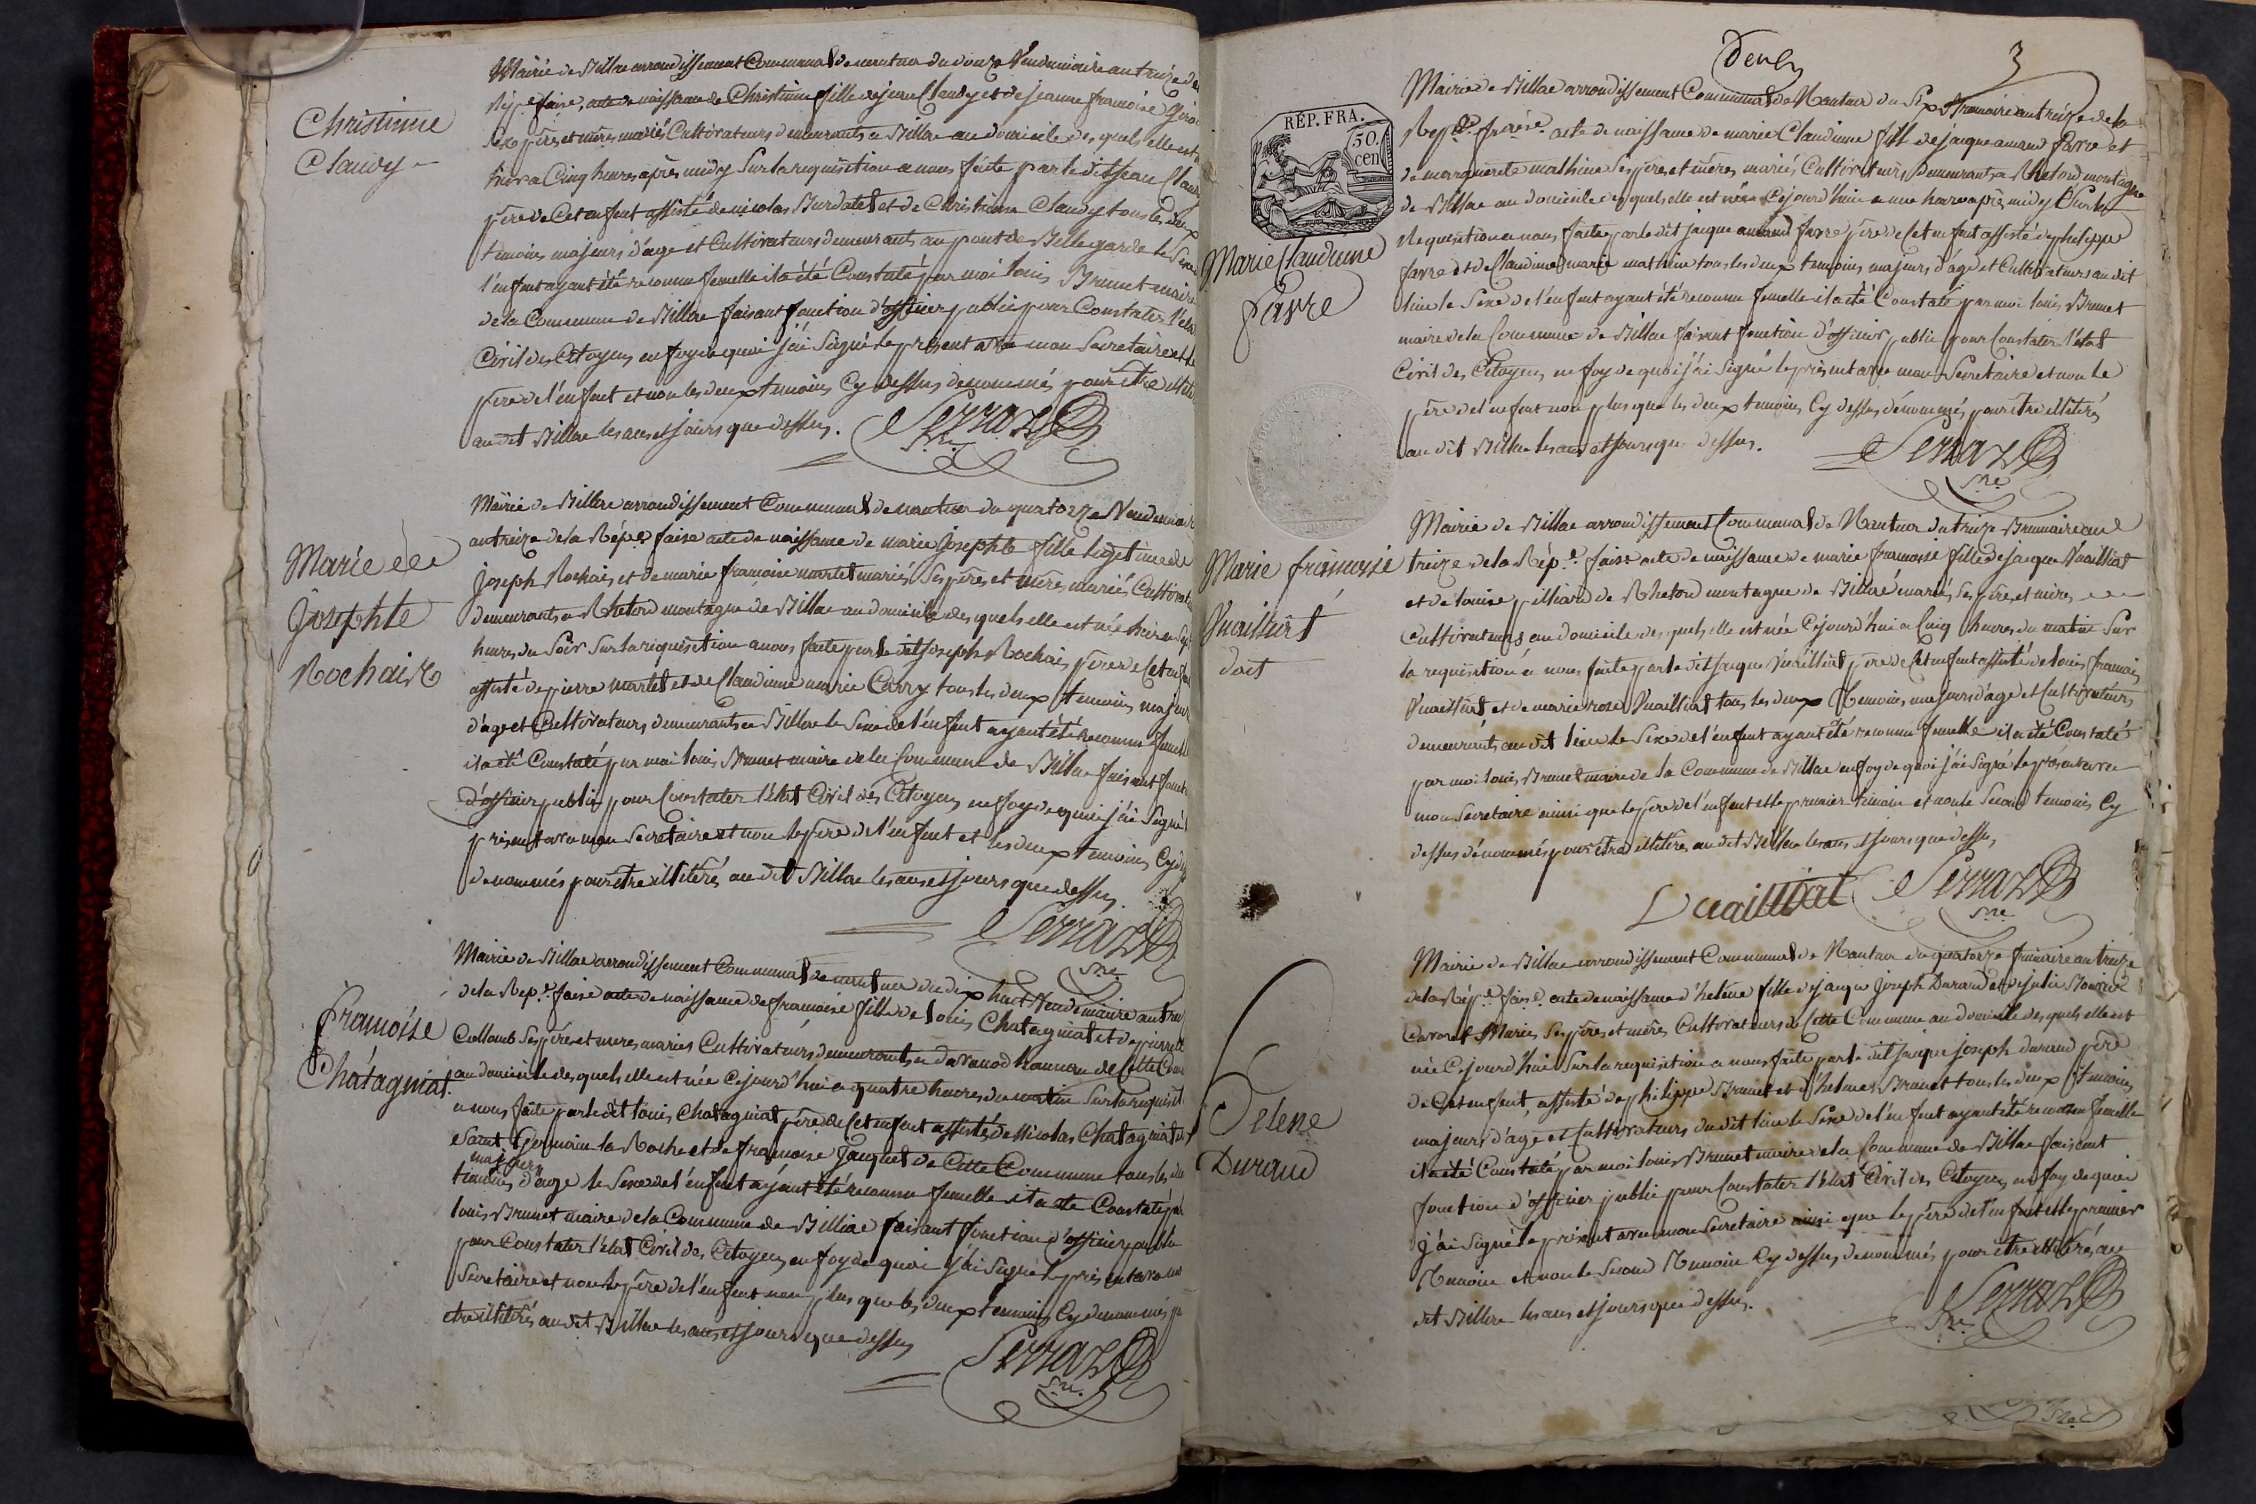 Christinne
Claudy
Mairie de Billiac arrondissement Communal de nantua du douze Vendemiaire an treize de
Rép.e faise, acte de naissance de Christinne fille de jean Claudy et de jeanne francoise
Ses père et mère mariés Cultivateurs demeurants a Billiac au domicile des quels elle est
hier a Cinq heures après midy Sur la requisition a nous faite par le dit jean Clau
père de Cet enfant assisté de nicolas Burdalet et de Christinne Claudy tous les deux
temoins majeurs d'age et Cultivateurs demeurants au pont de Bellegarde le Sexe
l'enfant ayant été reconnu femelle il a été Constaté par moi louis Brunet maire
de la Commune de Billiac faisant fonction d'officier public pour Constater l'etat
Civil des Citoyens en foy de quoi j'ai Signé le présent avec mon Secrétaire et non le
père de l'enfant et non les deux temoins Cy dessus denommés pour être illité
au dit Billiac les ans et jours que dessus.
Serraz
S.re
Marie
Josephte
Rochaix
Mairie de Billiac arrondissement Communal de nantua du quatorze Vendemiair
an treize de la Rép.e faise acte de naissance de marie Josephte fille legetime de
Joseph Rochaix et de marie francoise martel mariés Ses père et mère mariés Cultivat
demeurants a Rhetord montagne de Billiac au domicile des quels elle est née hier a
heures du Soir Sur la requisition a nous faite par le dit Joseph Rochaix père de Cet enfan
assisté de pierre martel et de Claudinne marie Carry tous les deux temoins majeur
d'age et Cultivateurs demeurants a Billiac le Sexe de l'enfant ayant été reconnu femel
il a été Constaté par moi louis Brunet maire de la Commune de Billiac faisant foncti
d'officier public pour Constater l'état Civil des Citoyens en foy de quoi j'ai Signé l
présent avec mon Secretaire et non le père de l'enfant et les deux temoins Cy de
denommés pour être illiterés au dit Billiac les ans et jours que dessus.
Serraz
S.re
francoise
Chatagniat.
Mairie de Billiac arrondissement Communal de nantua du dix huit Vendemiaire an trei
de la Rep.e faise acte de naissance de francoise fille de louis Chatagniat et de pierrette
Collomb Ses père et mere mariés Cultivateurs demeurants a davanod hameau de Cette Com
au domicile des quels elle est née Cejourd'hui a quatre heures du matin Sur la requisit
a nous faite par le dit louis Chatagniat père de Cet enfant assistés de Nicolas Chatagniat de
Saint Germain la Roche et de francoise Jacquet de Cette Commune tous les de
majeurs
temoins d'age le Sexe de l'enfant ayant été reconnu femelle il a été Constaté pa
louis Brunet maire de la Commune de Billiac faisant fonction d'officier public
pour Constater l'état Civil des Citoyens en foy de quoi j'ai Signé le présent avec mo
Secretaire et non le père de l'enfant non plus que les deux temoins Cy denommés p
être illiterés au dit Billiac les ans et jours que dessus
Serraz
S.re
3
RÉP. FRA.
50.
cen
Marie Claudinne
favre
Mairie de Billiac arrondissement Communal de Nantua du Six Brumaire an treize de la
Rep.e fraise. acte de naissance de marie Claudinne fille de jacque amand favre et
de marguerite mathieu Ses père et mères mariés Cultivateurs demeurants a Rhetord montagne
de Billiac au domicile des quels elle est née Cejourd'hui a une heure après midy Sur la
Requisition a nous faite par le dit jacque amand favre père de Cet enfant assisté de philippe
favre et de Claudinne marie mathieu tous les deux temoins majeurs d'age et Cultivateurs au dit
lieu le Sexe de l'enfant ayant été reconnu femelle il a été Constaté par moi louis Brunet
maire de la Commune de Billiac faisant fonction d'officier public pour Constater l'état
Civil des Citoyens en foy de quoi j'ai Signé le présent avec mon Secretaire et non le
père de l'enfant non plus que les deux temoins Cy dessus dénommés pour être illiterés
au dit Billiac les ans et jours que dessus.
Serraz
S.re
Marie francoise
Vuailliat
doit
Mairie de Billiac arrondissement Communal de Nantua du treize Brumaire an
treize de la Rép.e faise acte de naissance de marie francoise fille de jacque Vuailliat
et de louise pilliard de Rhetord montagne de Billiac mariés Ses père et mères
Cultivateurs au domicile des quels elle est née Cejourd'hui a Cinq heures du matin Sur
la requisition a nous faite par le dit jacque Vuailliat père de Cet enfant assisté de louis francois
Vuailliat et de marie rose Vuailliat tous les deux Temoins majeurs d'age et Cultivateurs
demeurants au dit lieu le Sexe de l'enfant ayant été reconnu femelle il a été Constaté
par moi louis Brunet maire de la Commune de Billiac en foy de quoi j'ai Signé le présent avec
mon Secretaire ainsi que le père de l'enfant et le premier temoin et non le Second temoins Cy
dessus dénommés pour être illiterés au dit Billiac les ans et jours que dessus
Vuailliat Serraz
S.re
helene
Durand
Mairie de Billiac arrondissement Communal de Nantua du quatorze frimaire an treize
de la Rép.e faise acte de naissance d'helene fille de jacque Joseph Durand et de julie
mariés Ses père et mères Cultivateurs de Cette Commune au domicile des quels elle est
née Cejourd'hui Sur la requisition a nous faite par le dit jacque joseph durand père
de Cet enfant, assisté de philippe Brunet et d'helene Brunet tous les deux temoins
majeurs d'age et Cultivateurs du dit lieu le Sexe de l'enfant ayant été reconnu femelle
il a été Constaté par moi louis Brunet maire de la Commune de Billiac faisant
fonction d'officier public pour Constater l'état Civil des Citoyens en foy de quoi
j'ai Signé le présent avec mon Secretaire ainsi que le père de l'enfant et le premier
Temoin et non le Second Temoin Cy dessus denommés pour être illiteré au
dit Billiac les ans et jours que dessus.
Serraz
S.re